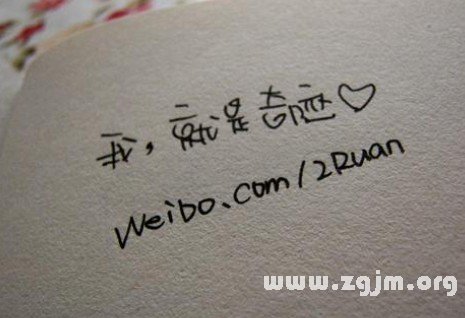 我，就是奇迹♡
Weibo.com/2Ruan
www.zgjm.org